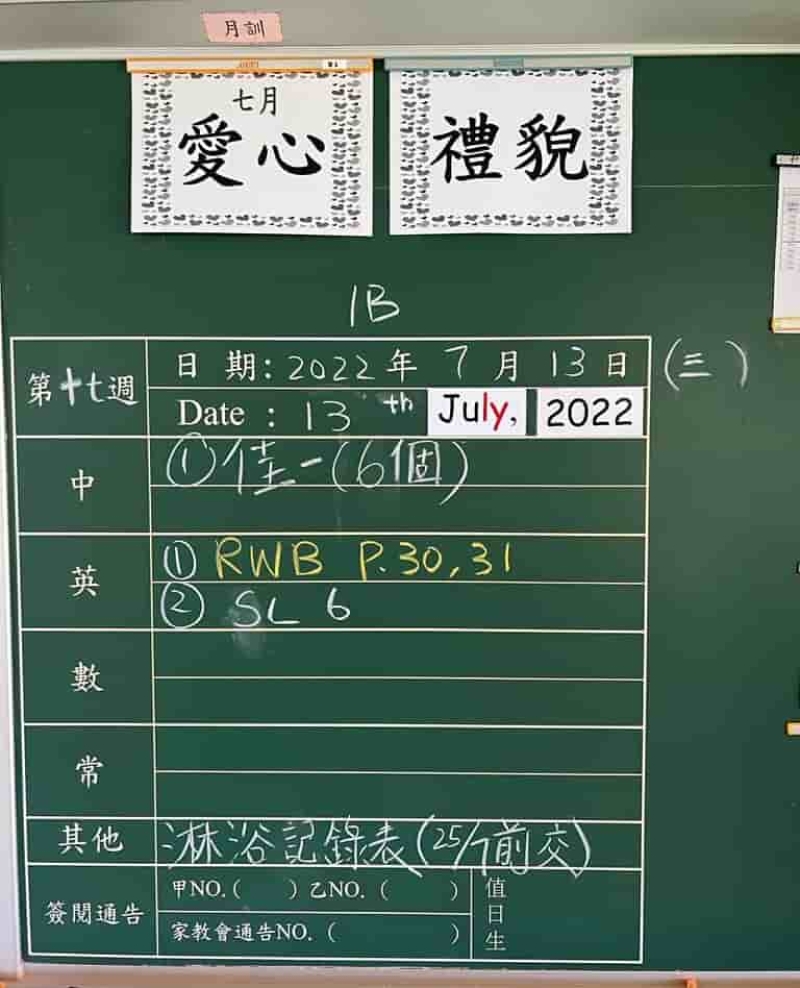 月訓
七月
愛心
禮貌
1B
第十七週
日期: 2022年 7月 13日 (三)
Date : 13th July, 2022
中
① 佳一(6個)
英
① RWB P.30,31
② SL 6
數
常
其他
淋浴記錄表(25/7前交)
簽閱通告
甲NO. ( ) 乙NO. ( )
家教會通告NO. ( )
值日生